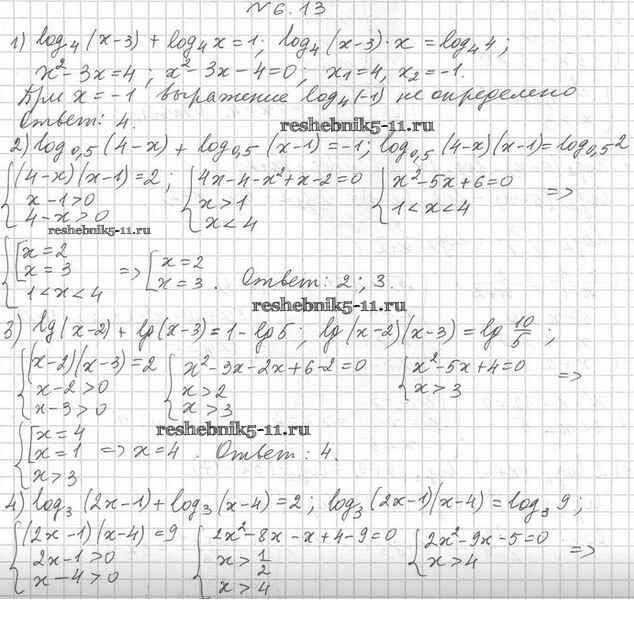 № 6.13
1) log₄(x-3) + log₄x = 1; log₄(x-3)·x = log₄4;
x²-3x=4, x²-3x-4=0; x₁=4, x₂=-1.
При x=-1 выражение log₄(-1) не определено
Ответ: 4.
reshebnik5-11.ru
2) log₀,₅(4-x) + log₀,₅(x-1)=-1; log₀,₅(4-x)(x-1)=log₀,₅2
{(4-x)(x-1)=2; {4x-4-x²+x-2=0 {x²-5x+6=0 =>
x-1>0 x>1 1<x<4
4-x>0 x<4
reshebnik5-11.ru
{[x=2 => [x=2
x=3 x=3. Ответ: 2; 3.
1<x<4
reshebnik5-11.ru
3) lg(x-2) + lg(x-3) = 1-lg5; lg(x-2)(x-3) = lg 10/5;
{(x-2)(x-3)=2 {x²-3x-2x+6-2=0 {x²-5x+4=0 =>
x-2>0 x>2 x>3
x-3>0 x>3
reshebnik5-11.ru
{[x=4
x=1 => x=4. Ответ: 4.
x>3
4) log₃(2x-1)+log₃(x-4)=2; log₃(2x-1)(x-4)=log₃9;
{(2x-1)(x-4)=9 {2x²-8x-x+4-9=0 {2x²-9x-5=0 =>
2x-1>0 x>1/2 x>4
x-4>0 x>4